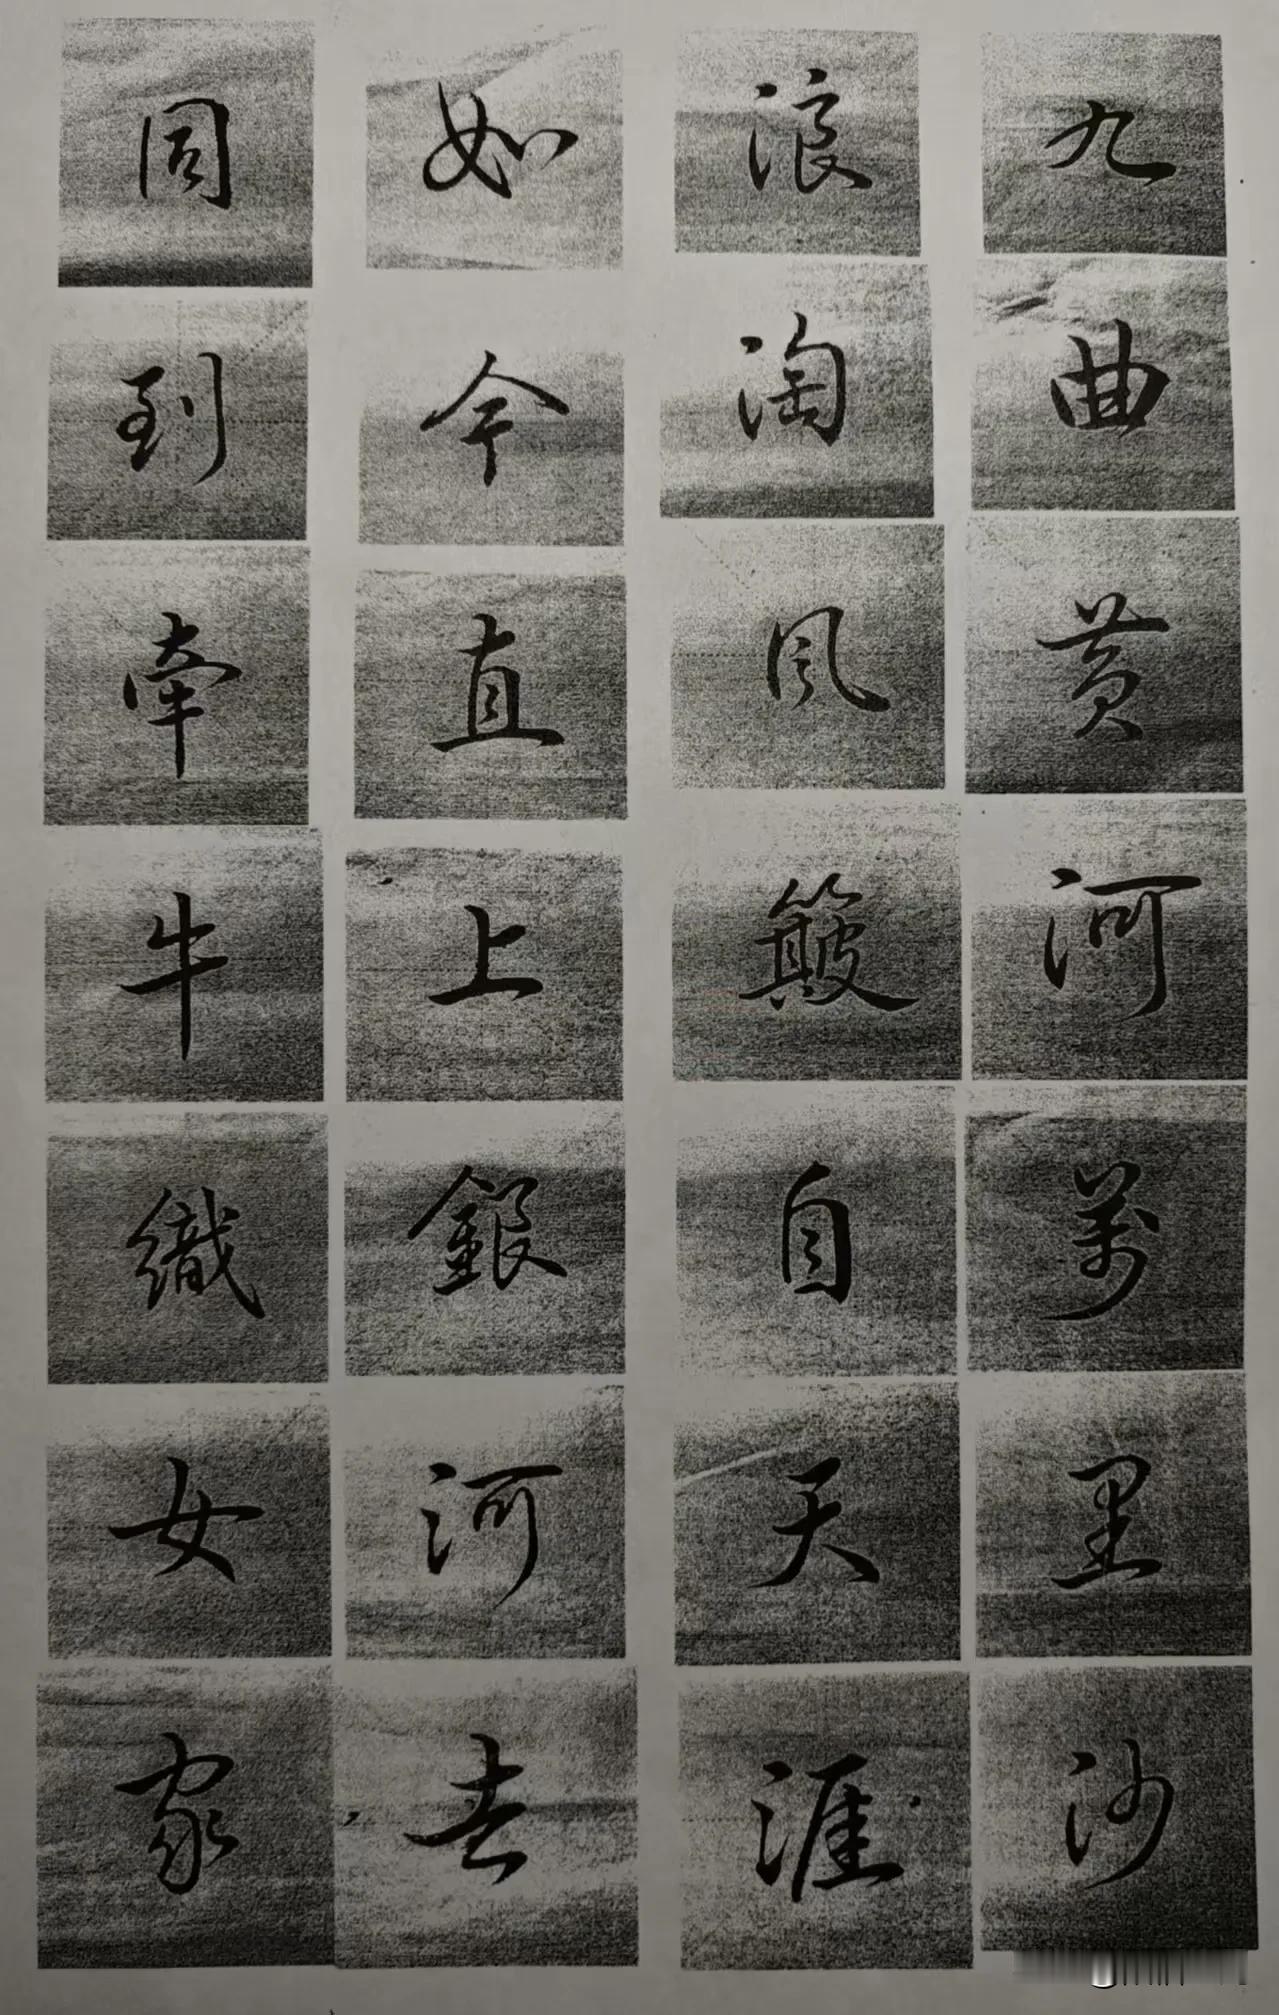 九曲黄河萬里沙
浪淘風簸自天涯
如今直上銀河去
同到牽牛織女家